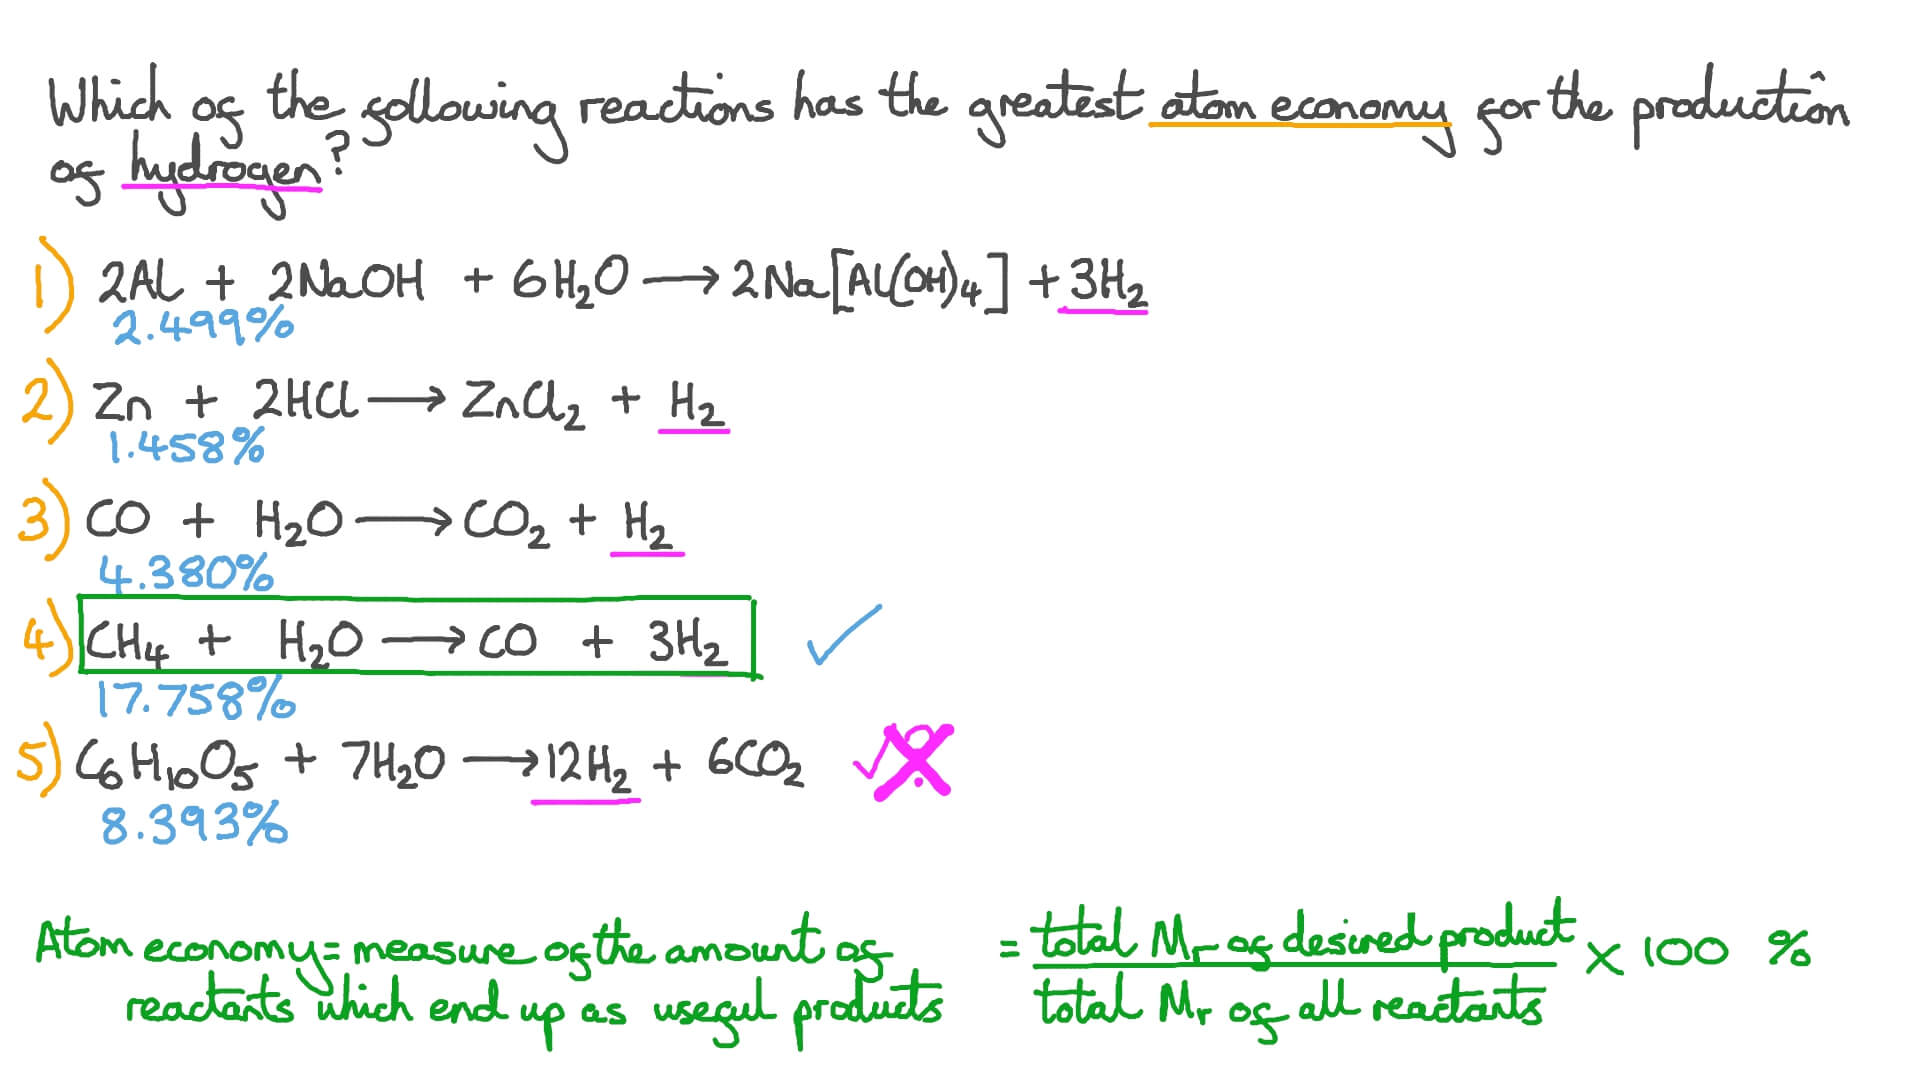 Which of the following reactions has the greatest atom economy for the production
of hydrogen?
1) 2Al + 2NaOH + 6H₂O → 2Na[Al(OH)₄] + 3H₂
2.499%
2) Zn + 2HCl → ZnCl₂ + H₂
1.458%
3) CO + H₂O → CO₂ + H₂
4.380%
4) CH₄ + H₂O → CO + 3H₂ ✓
17.758%
5) C₆H₁₀O₅ + 7H₂O → 12H₂ + 6CO₂
8.393%
Atom economy = measure of the amount of
reactants which end up as useful products
= total Mᵣ of desired product
× 100 %
total Mᵣ of all reactants